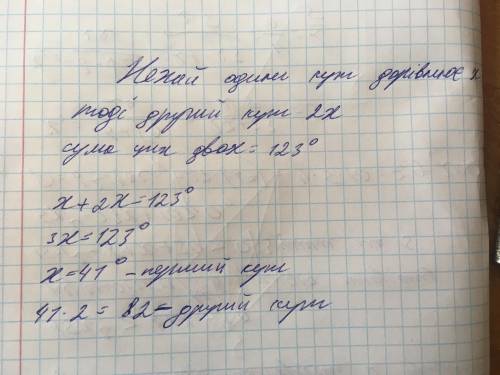 Нехай один кут дорівнює x
тоді другий кут 2x
сума цих двох = 123°
x + 2x = 123°
3x = 123°
x = 41° - перший кут
41 · 2 = 82 - другий кут